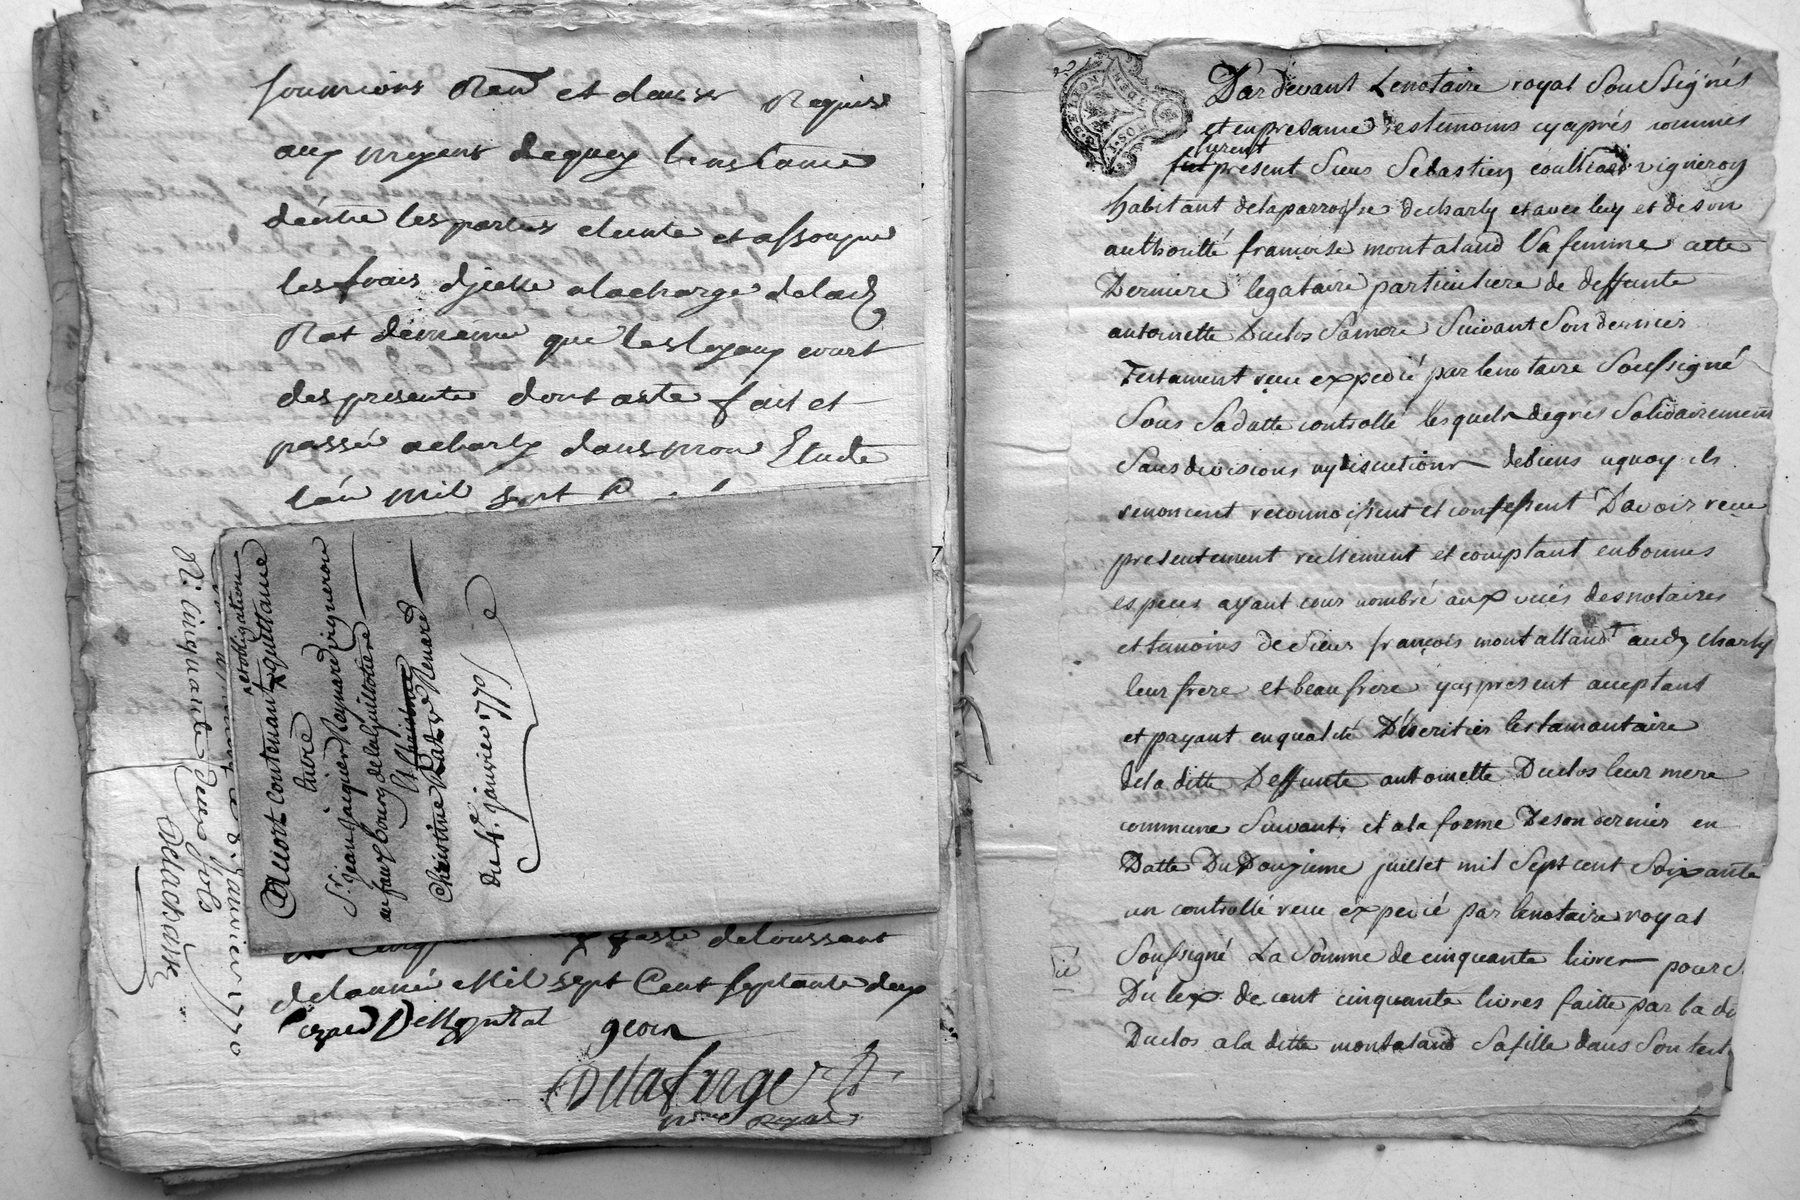 et dans Requis
aux moyens dequoy linstance
dentre les parties eteinte et assoupie
les frais dicelle alacharge delad
Rat demeime que les loyaux couts
des presente dont acte fait et
passé acharly dans mon Etude
lan mil sept
Accort Contenant quittance
et obligation
Entre
Sr. jean jacques Raynard vigneron
au fauxbourg delaguillotiere
Et
Christinne Rat ve Renard
du 4e. janvier 1770
delanné Mil sept Cent septante deux
Delafarge
nre Royal
janvier 1770
Rt. cinquante Deux sols
Delachank
LYON
Pardevant Lenotaire royal Soussignés
et enpresance des temoins cyaprés nommés
furent
présent Sieur Sebastien vigneron
habitant delaparroisse decharly et avec luy et de son
authoritté françoise montaland Sa femme cette
Derniere legataire particuliere de deffunte
antoinette Duclos Samere Suivant Son dernier
Testament reçu expedié par lenotaire Soussigné
Sous Sadatte controllé lesquels degrés Solidairement
Sans divisions ny discutions debiens aquoy ils
renoncent reconnoissent et confessent Davoir reçu
presentement reellement et comptant enbonnes
especes ayant cour nombré aux vües desnotaires
et temoins de Sieur françois montalland audt charly
leur frere et beaufrere yci present aceptant
et payant enqualité Dheritier testamantaire
dela ditte Deffunte antoinette Duclos leur mere
commune Suivant et ala forme Deson dernier en
Datte Du Douzieme juillet mil Sept cent Soixante
un controllé reçu expedié par lenotaire royal
Soussigné La Somme de cinquante livres
Du lex de cent cinquante livres faitte par la
Duclos ala ditte montaland Safille dans Son test